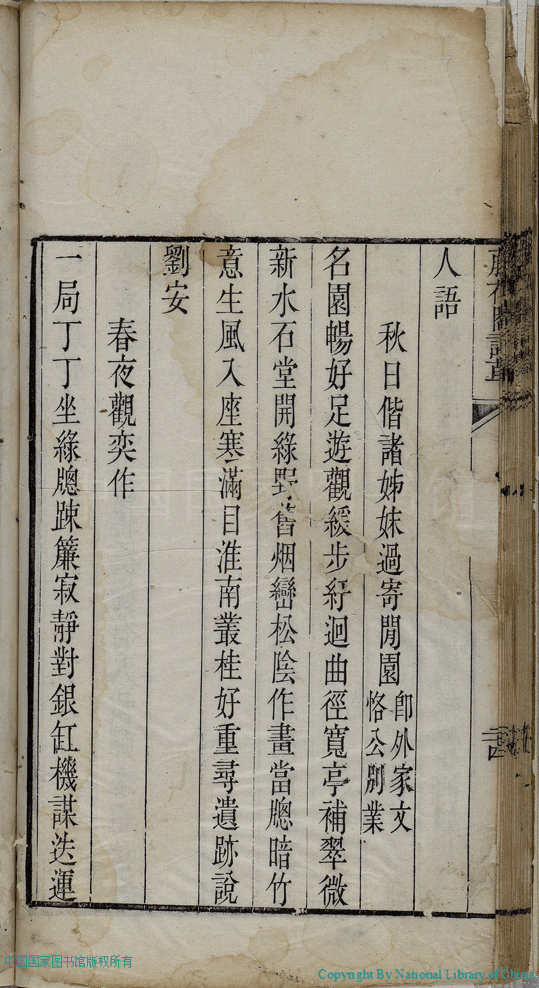 人語
秋日偕諸姊妹過寄閒園
即外家文
恪公別業
名園暢好足遊觀緩步紆迴曲徑寬亭補翠微
新水石堂開綠野舊烟巒松陰作畫當牕暗竹
意生風入座寒滿目淮南叢桂好重尋遺跡說
劉安
春夜觀奕作
一局丁丁坐綠牕疎簾寂靜對銀缸機謀迭運
中国国家图书馆版权所有
Copyright By National Library of China